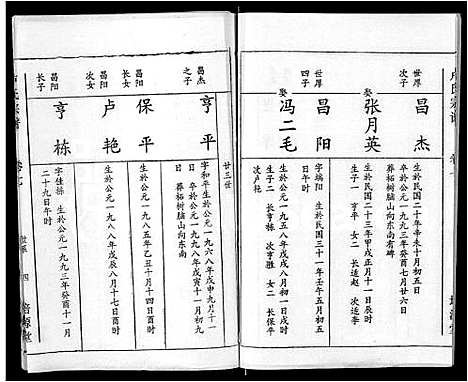 世厚
次子
昌杰
生於民国二十年辛未十月初五日
卒於公元一九九三年癸酉七月廿六日
葬柘树脑山向东南有碑
娶
张月英
生於民国二十三年甲戌正月初八日
生子一 亨平 女二 长适赵 次适李
世厚
四子
昌阳
字端阳 生於民国三十一年壬午五月初五
日时
娶
冯二毛
生於公元一九五八年戊戌八月初一日戌时
生子二 长亨栋 次亨雅 女二 长保平
次卢艳
廿三世
昌杰
之子
亨平
字和平生於公元一九六八年戊申九月十一
日 卒於公元一九九八年戊寅十一月初九
日 葬柘树脑山向东南
昌阳
长女
保平
生於公元一九八五年乙丑十月十四日酉时
昌阳
次女
卢艳
生於公元一九八八年戊辰八月十七日酉时
昌阳
长子
亨栋
字佳栋 生於公元一九九三年癸酉十一月
二十九日午时
四